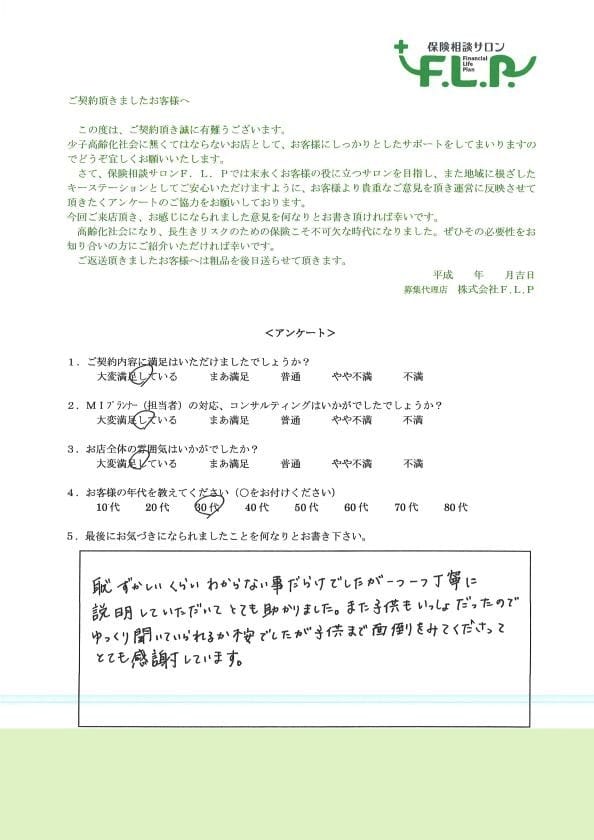 保険相談サロン
F.L.P.
Financial
Life
Plan
ご契約頂きましたお客様へ
この度は、ご契約頂き誠に有難うございます。
少子高齢化社会に無くてはならないお店として、お客様にしっかりとしたサポートをしてまいりますの
でどうぞ宜しくお願いいたします。
さて、保険相談サロンF．L．Pでは末永くお客様の役に立つサロンを目指し、また地域に根ざした
キーステーションとしてご安心いただけますように、お客様より貴重なご意見を頂き運営に反映させて
頂きたくアンケートのご協力をお願いしております。
今回ご来店頂き、お感じになられました意見を何なりとお書き頂ければ幸いです。
高齢化社会になり、長生きリスクのための保険こそ不可欠な時代になりました。ぜひその必要性をお
知り合いの方にご紹介いただければ幸いです。
ご返送頂きましたお客様へは粗品を後日送らせて頂きます。
平成　　年　　月吉日
募集代理店　株式会社F.L.P
＜アンケート＞
１．ご契約内容に満足はいただけましたでしょうか？
大変満足している　　まあ満足　　普通　　やや不満　　不満
２．ＭＩプランナー（担当者）の対応、コンサルティングはいかがでしたでしょうか？
大変満足している　　まあ満足　　普通　　やや不満　　不満
３．お店全体の雰囲気はいかがでしたか？
大変満足している　　まあ満足　　普通　　やや不満　　不満
４．お客様の年代を教えてください（○をお付けください）
10代　　20代　　30代　　40代　　50代　　60代　　70代　　80代
５．最後にお気づきになられましたことを何なりとお書き下さい。
恥ずかしいくらいわからない事だらけでしたが一つ一つ丁寧に
説明していただいてとても助かりました。また子供もいっしょだったので
ゆっくり聞いていられるか不安でしたが子供まで面倒をみてくださって
とても感謝しています。